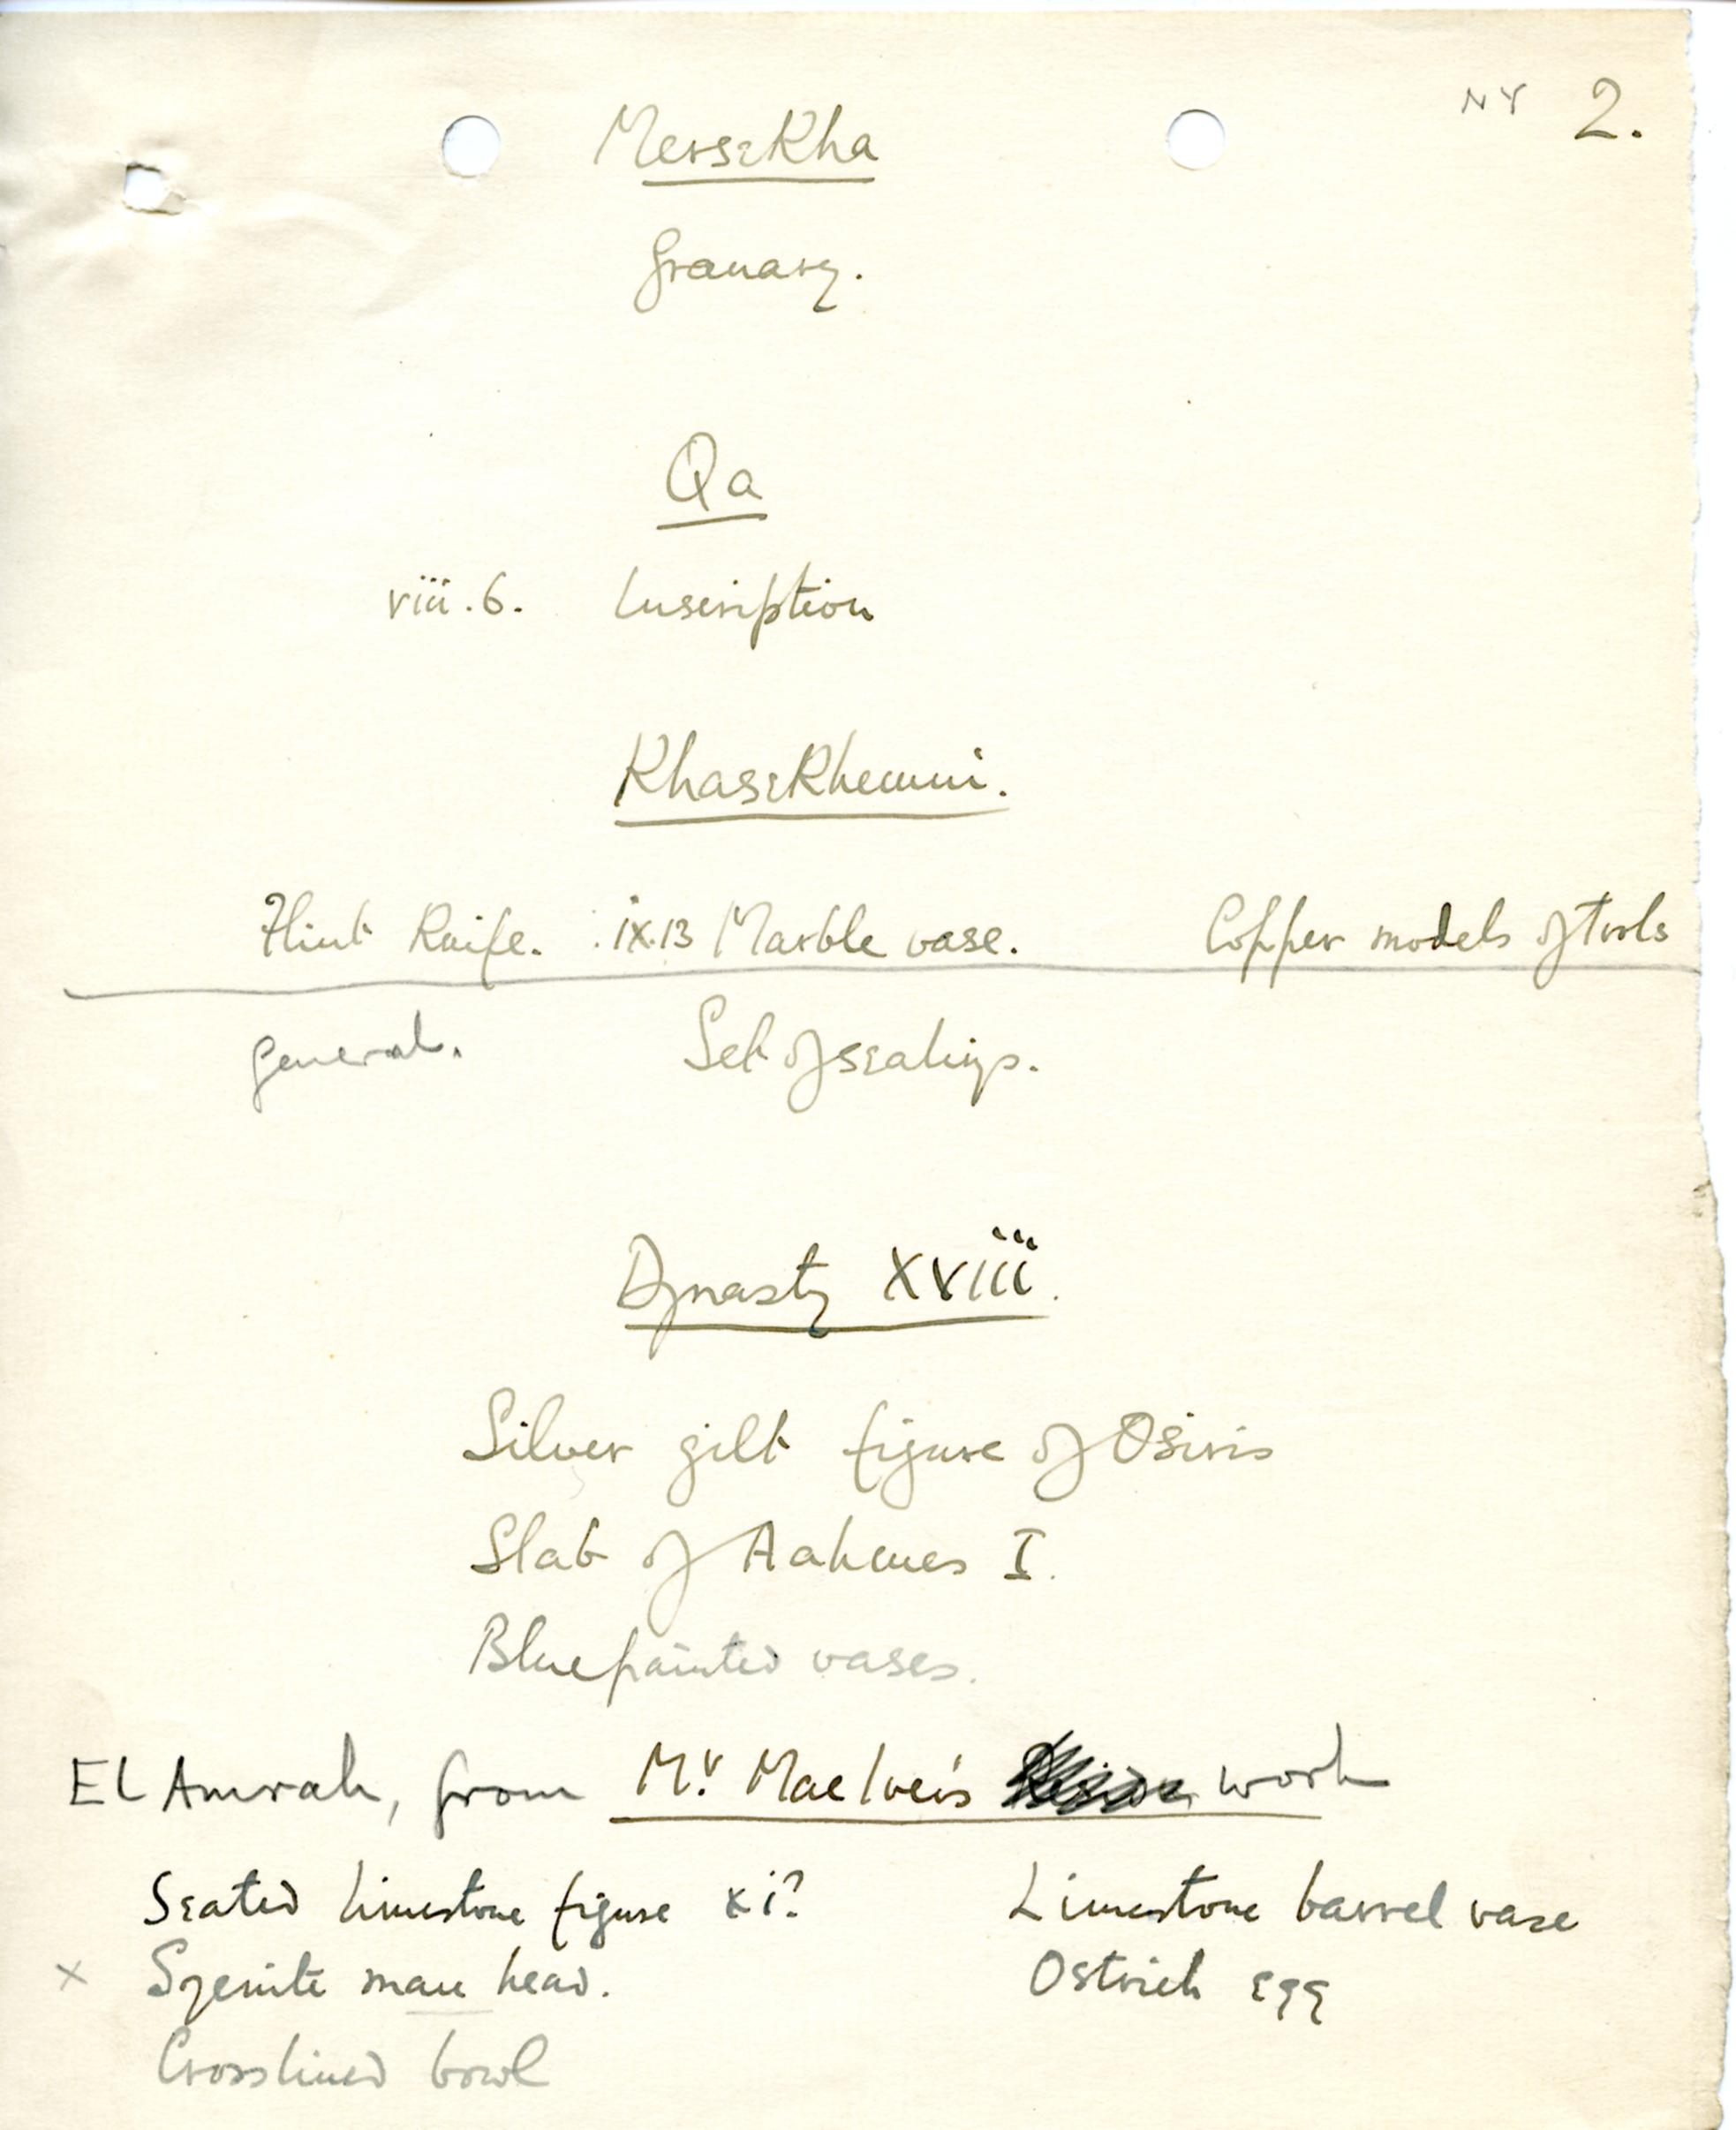 NY 2.
Mersekha
Granary.
Qa
viii.6. Inscription
Khasekhemui.
Flint Knife. ix.13 Marble vase. Copper models of tools
General. Set of sealings.
Dynasty XVIII.
Silver gilt figure of Osiris
Slab of Aahmes I.
Blue painted vases.
El Amrah, from Mr. MacIver's work
Seated limestone figure xi? Limestone barrel vase
x Syenite mace head. Ostrich egg
Crosslined bowl